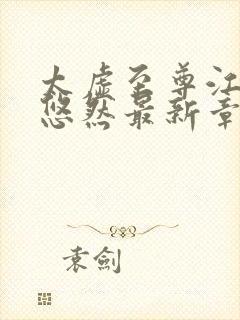 太虚至尊江
悠然最新章
袁劍